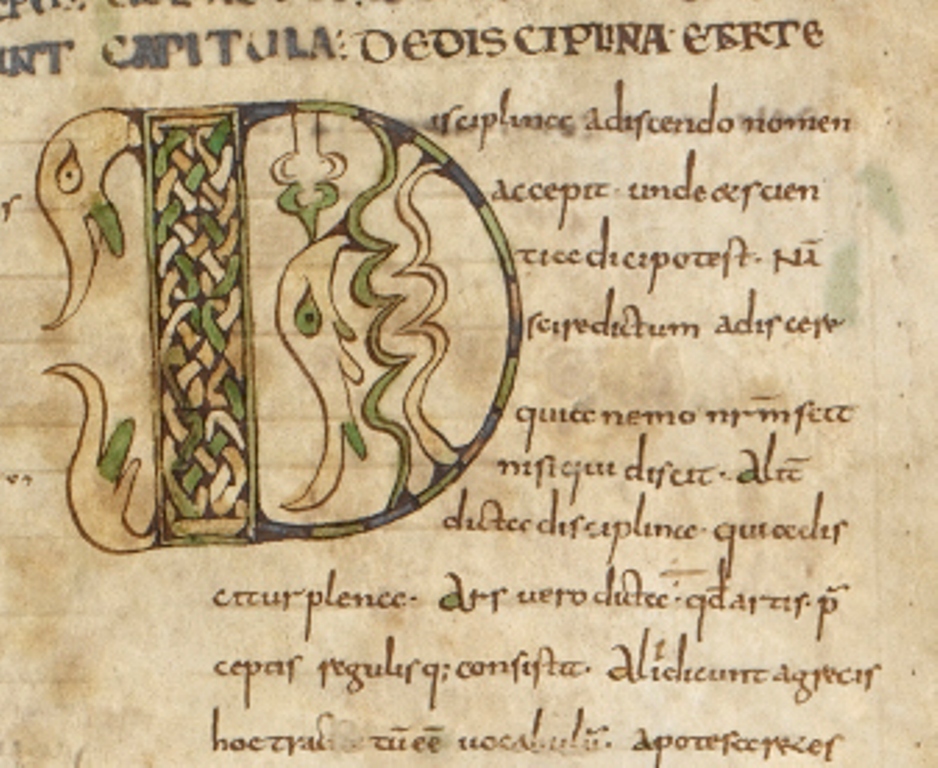 UNT CAPITULA: DE DISCIPLINA ET ARTE
Disciplina a discendo nomen
accepit · unde & scien
tia dici potest · Nā
scire dictum a discere
quia nemo nr̄m scit
nisi qui discit · Aliť
dicta disciplina · quia dis
citur plena · Ars vero dicta ē · qđ artis p̄
ceptis regulisq; consistat · Alii dicunt a grecis
hoc trac tū eē vocabulū · apo tes aretes